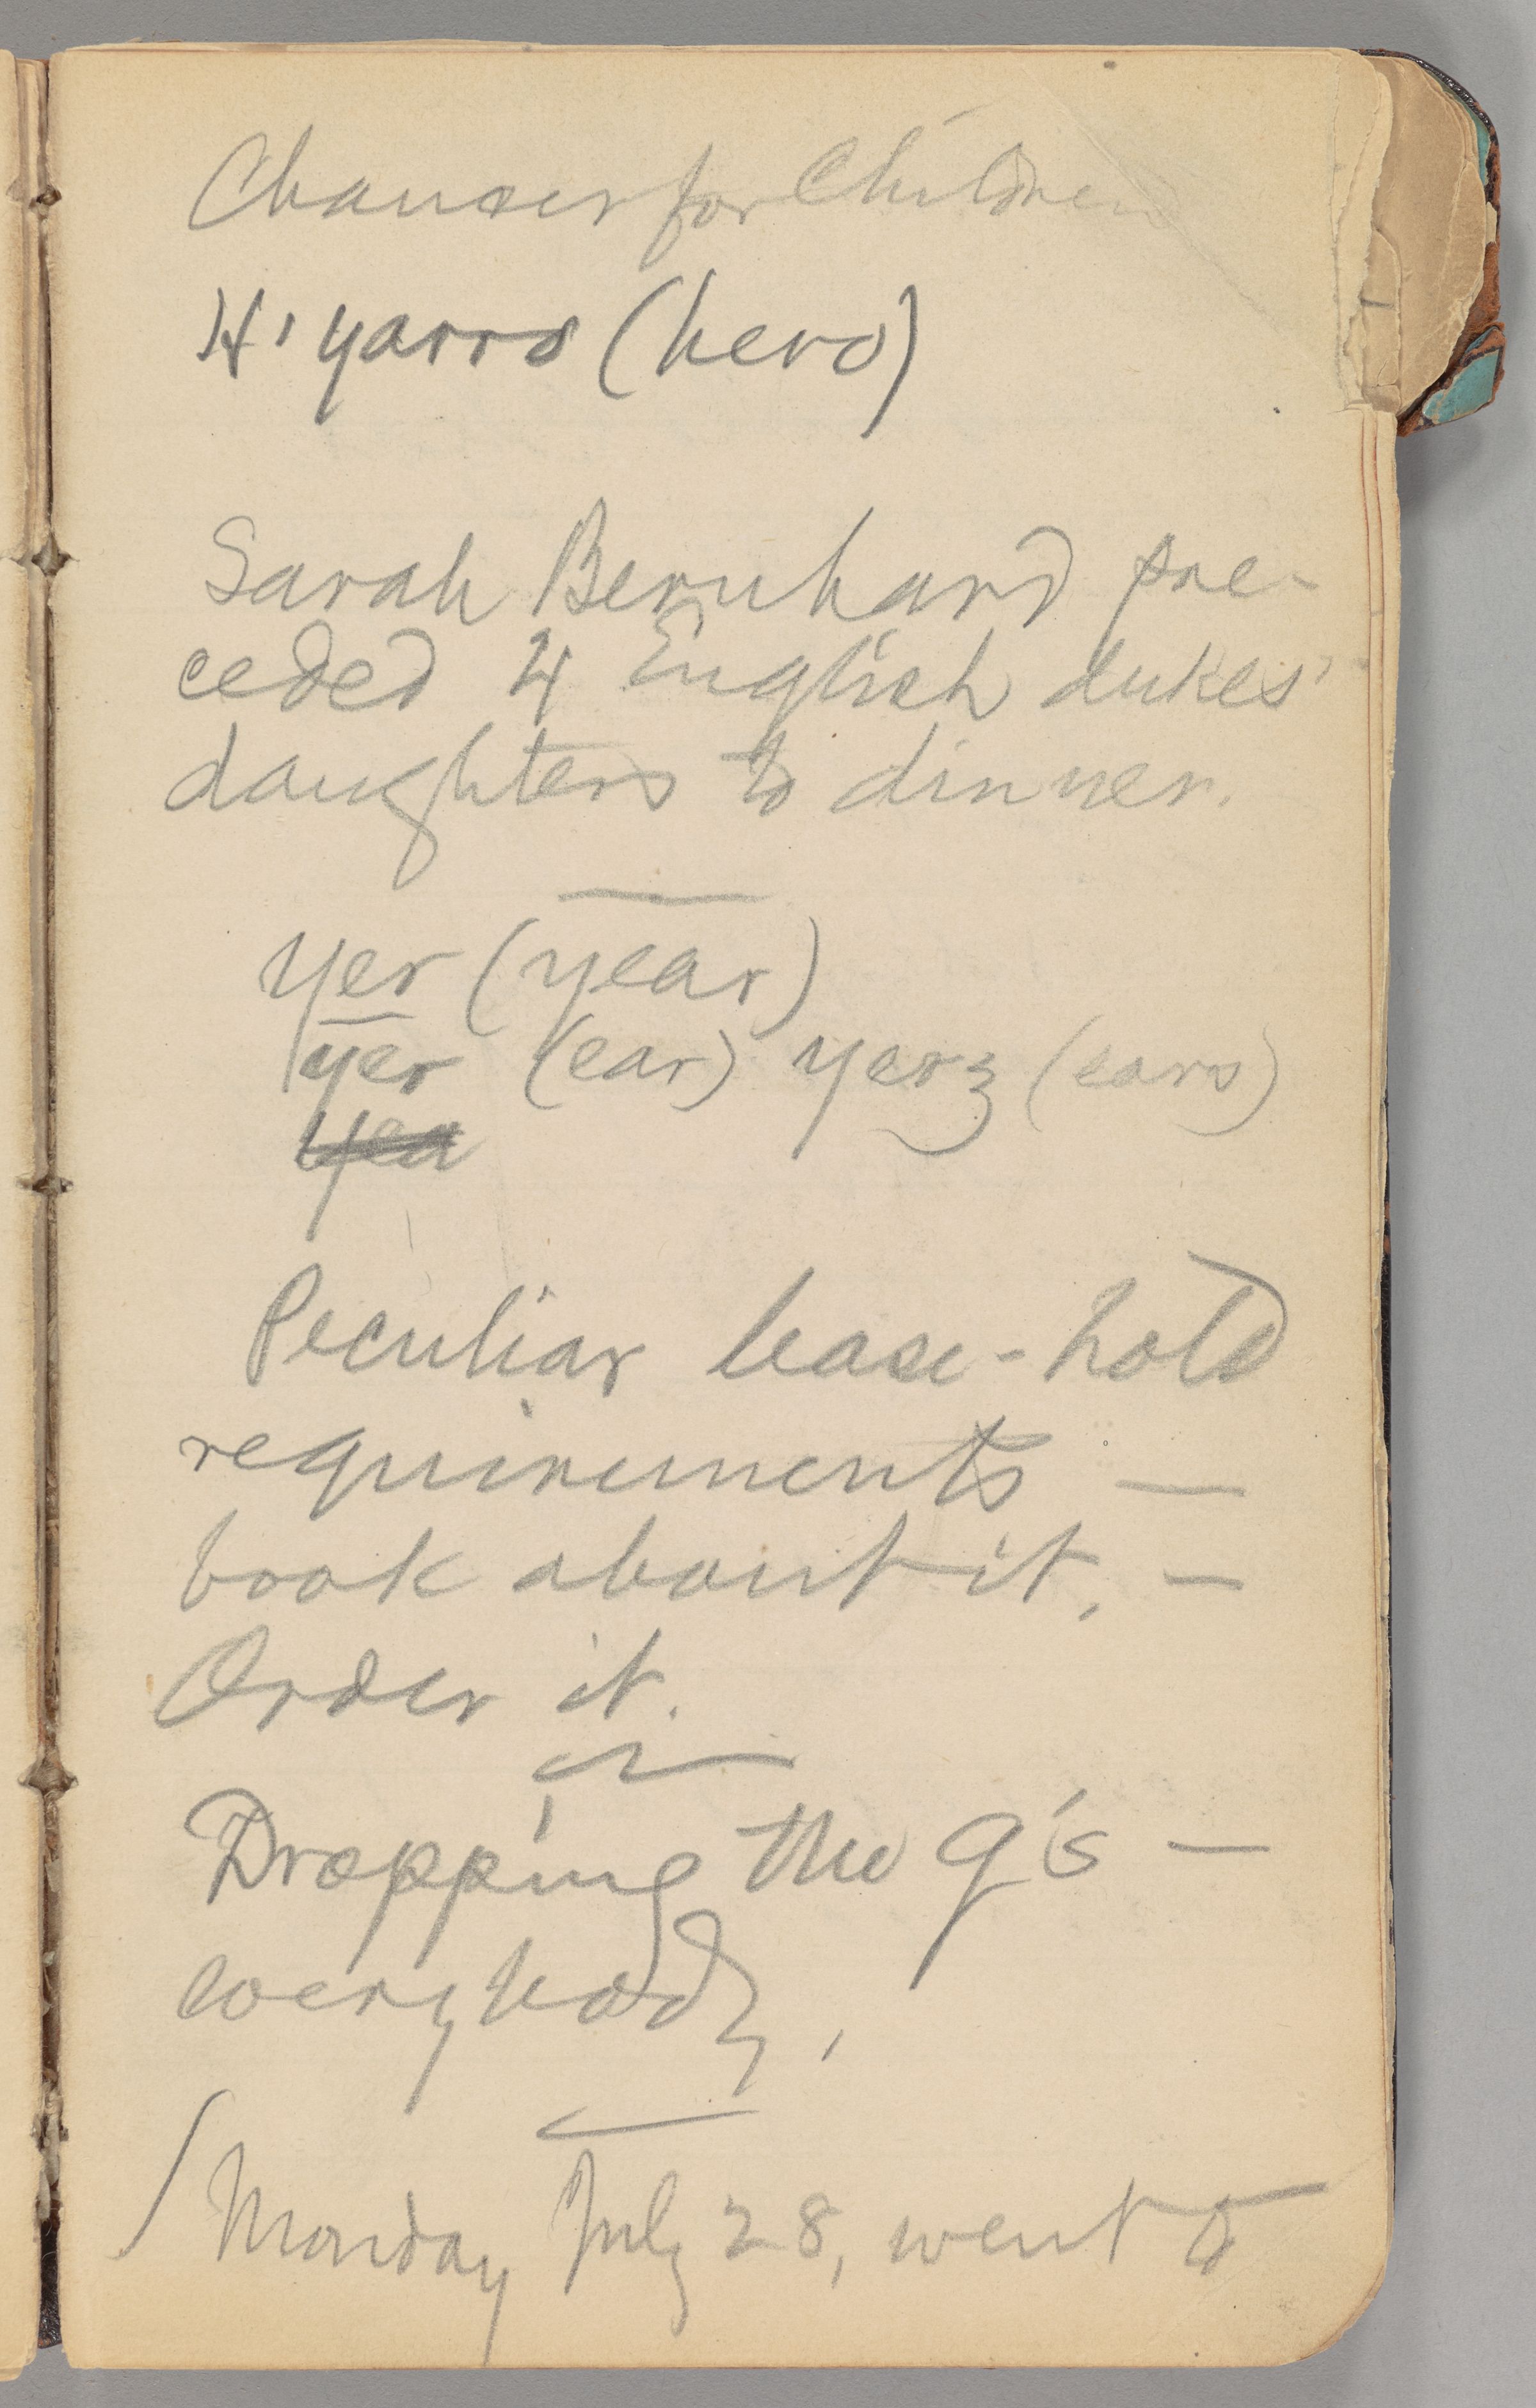 Chaucer for Children
H'yarro (hero)
Sarah Bernhard pre-
ceded 4 English dukes'
daughters to dinner.
yer (year)
yer (ear) yerz (ears)
yea
Peculiar lease-hold
requirements —
book about it. —
Order it.
Dropping the g's —
everybody.
Monday July 28, went to